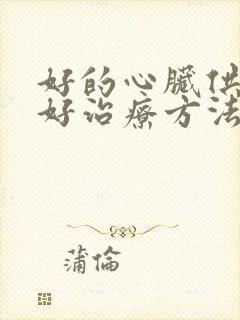 好的心臟供
好治療方法
蒲倫